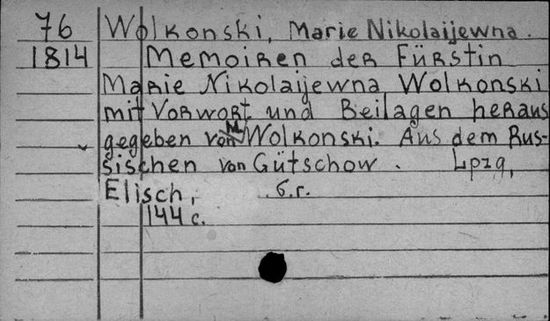 76 Wolkonski, Marie Nikolaijewna.
1814 Memoiren der Fürstin
Marie Nikolaijewna Wolkonski
mit Vorwort und Beilagen heraus
gegeben von M Wolkonski. Aus dem Rus-
sischen von Gütschow. Lpzg,
Elisch, б.г.
144 с.